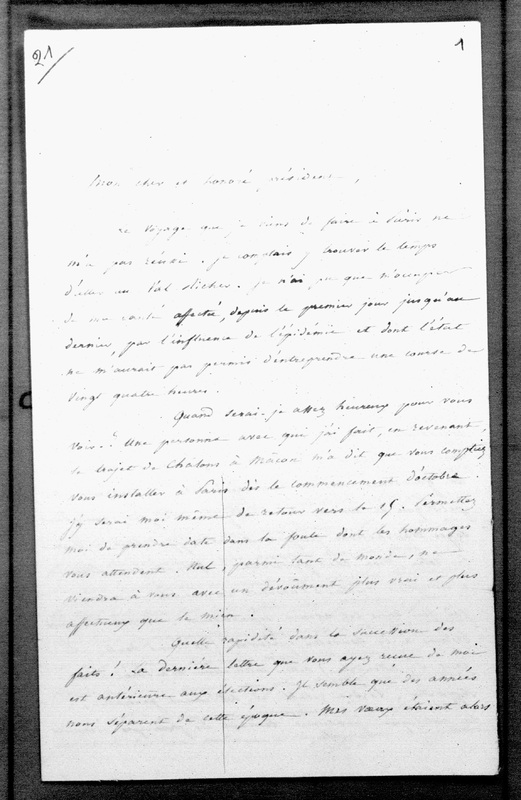 21
1
Mon cher et honoré président,
Le voyage que je viens de faire à ne
m'a pas réussi. je comptais y trouver le temps
d'aller au Val Richer. je n'ai pu que m'occuper
de ma santé affectée, depuis le premier jour jusqu'au
dernier, par l'influence de l'épidémie et dont l'état
ne m'aurait pas permis d'entreprendre une course de
vingt quatre heures.
Quand serai-je assez heureux pour vous
voir ? Une personne avec qui j'ai fait, en revenant,
le trajet de Chalons à Mâcon m'a dit que vous comptiez
vous installer à Paris dès le commencement d'octobre.
j'y serai moi même de retour vers le 15. Permettez
moi de prendre date dans la foule dont les hommages
vous attendent. Nul, parmi tant de monde, ne
viendra à vous avec un dévoûment plus vrai et plus
affectueux que le mien.
Quelle rapidité dans la succession des
faits ! La dernière lettre que vous ayez reçue de moi
est antérieure aux élections. Il semble que des années
nous séparent de cette époque. Mes vœux étaient alors